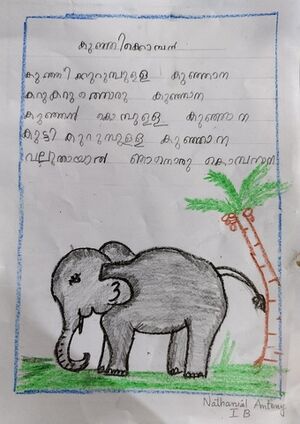 കുഞ്ഞിക്കൊമ്പൻ
കുഞ്ഞി ക്കുറുമ്പുള്ള കുഞ്ഞാന
കറുകറുത്തൊരു കുഞ്ഞാന
കുഞ്ഞൻ കൊമ്പുള്ള കുഞ്ഞാന
കുട്ടി കുറുമ്പുള്ള കുഞ്ഞാന
വലുതായാൽ ഞാനൊരു കൊമ്പനാന
Nathanial Antony
I B